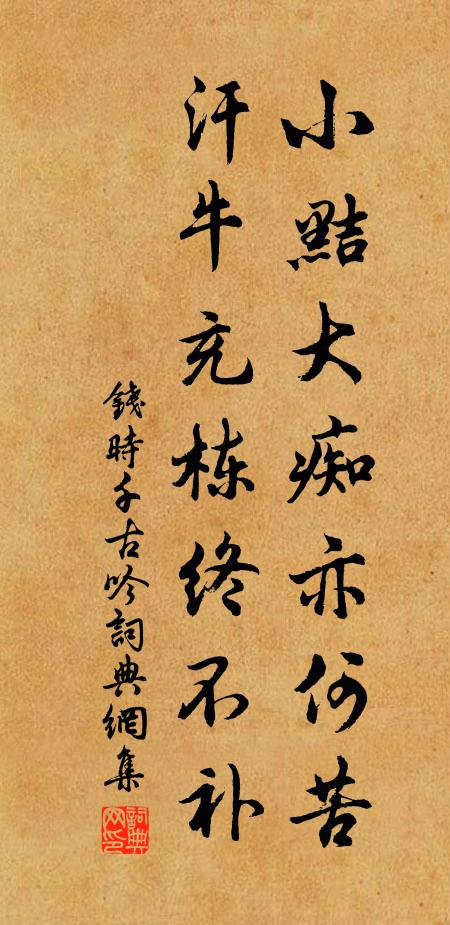 小黠大痴亦何苦
汗牛充栋终不补
錢時千古吟詞典網集
詞典網印